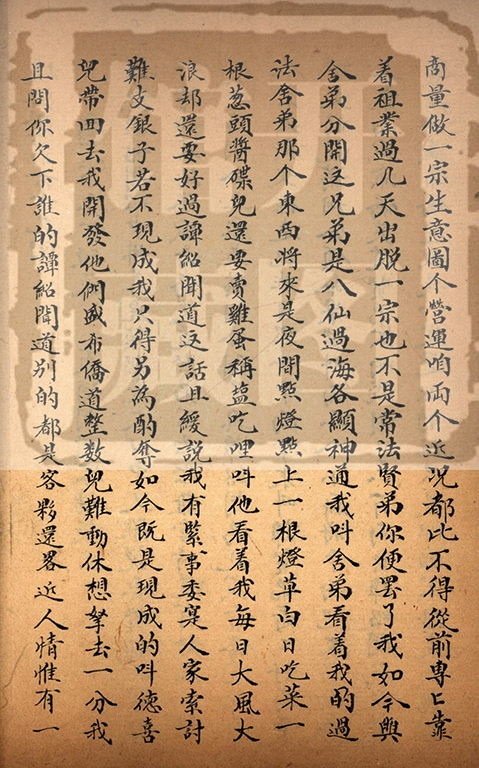 商量做一宗生意圖个營運咱両个近况都比不得從前専上靠
着祖業過几天出脱一宗也不是常法賢弟你便罢了我如今與
舍弟分開这兄弟是八仙過海各顯神通我呌舍弟看着我的過
法舍弟那个東西將來是夜間㸃燈㸃上一根燈草白日吃菜一
根葱頭醬碟兒還要賣雞蛋稱塩吃哩呌他看着我每日大風大
浪却還要好過譚紹聞道这話且緩説我有緊事委寔人家索討
難支銀子若不現成我只得另為酌奪如今既是現成的呌德喜
兒帶回去我開發他們盛希僑道整数兒難動休想拏去一分我
且問你欠下誰的譚紹聞道别的都是客夥還畧近人情惟有一